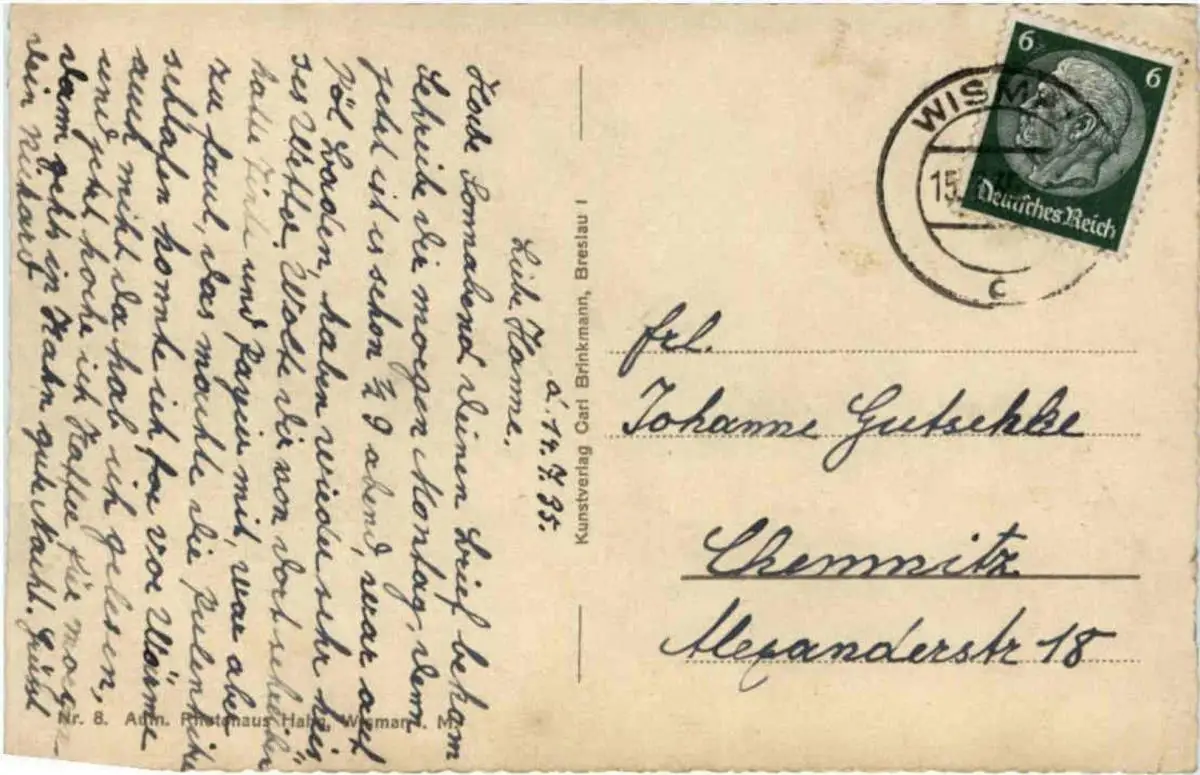 d. 14.7.35.
Liebe Hanne.
Habe Sonnabend deinen Brief bekom
Schreibe die morgen Montag, denn
jetzt ist es schon ½ 9 abend, war auf
Pöl baden, haben wieder sehr heis
ses Wetter. Wolte dir von dort schreiben
hatte Tinte und Papier mit, war aber
zu faul, das machte die
schlafen konnte ich for vor Wärme
auch nicht da hab ich gelesen,
und jetzt koche ich Kaffee für morgen
dann gehts in Kahn gute Nacht. Grüsst
dein Richard
Kunstverlag Carl Brinkmann, Breslau I
Nr. 8. Aufn. Photohaus Hahn, Wismar i. M.
6 6
Deutsches Reich
WISMAR
15.
c
Frl.
Johanne Gutschke
Chemnitz
Alexanderstr 18